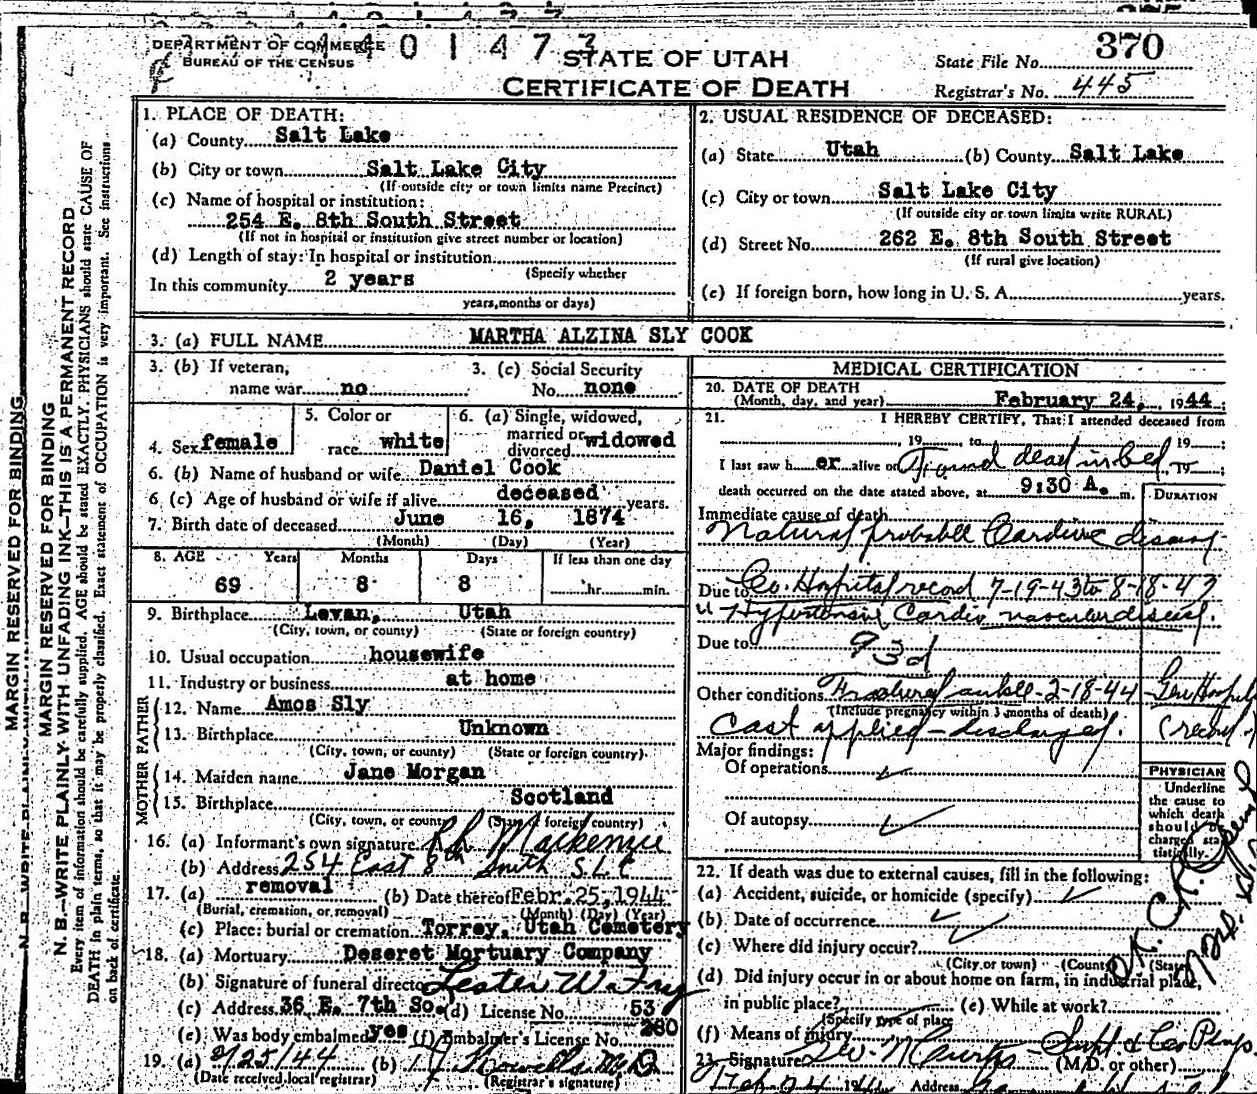 DEPARTMENT OF COMMERCE
BUREAU OF THE CENSUS
4401473
STATE OF UTAH
CERTIFICATE OF DEATH
State File No. 370
Registrar's No. 445
MARGIN RESERVED FOR BINDING
MARGIN RESERVED FOR BINDING
N. B.—WRITE PLAINLY WITH UNFADING INK—THIS IS A PERMANENT RECORD
Every item of information should be carefully supplied. AGE should be stated EXACTLY. PHYSICIANS should state CAUSE OF
DEATH in plain terms, so that it may be properly classified. Exact statement of OCCUPATION is very important. See instructions
on back of certificate.
1. PLACE OF DEATH:
(a) County Salt Lake
(b) City or town Salt Lake City
(If outside city or town limits name Precinct)
(c) Name of hospital or institution:
254 E. 8th South Street
(If not in hospital or institution give street number or location)
(d) Length of stay: In hospital or institution
(Specify whether
In this community 2 years
years, months or days)
2. USUAL RESIDENCE OF DECEASED:
(a) State Utah (b) County Salt Lake
(c) City or town Salt Lake City
(If outside city or town limits write RURAL)
(d) Street No. 262 E. 8th South Street
(If rural give location)
(e) If foreign born, how long in U. S. A. years.
3. (a) FULL NAME MARTHA ALZINA SLY COOK
3. (b) If veteran,
name war no
3. (c) Social Security
No. none
4. Sex female
5. Color or
race white
6. (a) Single, widowed,
married or
divorced widowed
6. (b) Name of husband or wife Daniel Cook
6 (c) Age of husband or wife if alive deceased years.
7. Birth date of deceased June 16, 1874
(Month) (Day) (Year)
8. AGE Years Months Days If less than one day
69 8 8 hr. min.
9. Birthplace Levan, Utah
(City, town, or county) (State or foreign country)
10. Usual occupation housewife
11. Industry or business at home
FATHER
12. Name Amos Sly
13. Birthplace Unknown
(City, town, or county) (State or foreign country)
MOTHER
14. Maiden name Jane Morgan
15. Birthplace Scotland
(City, town, or county) (State or foreign country)
16. (a) Informant's own signature R L Mackenzie
(b) Address 254 East 8th South S.L.C
17. (a) removal (b) Date thereof Febr. 25, 1944
(Burial, cremation, or removal) (Month) (Day) (Year)
(c) Place: burial or cremation Torrey, Utah Cemetery
18. (a) Mortuary Deseret Mortuary Company
(b) Signature of funeral director Lester W.
(c) Address 36 E. 7th So. (d) License No. 53
(e) Was body embalmed yes (f) Embalmer's License No. 260
19. (a) 2/25/44 (b)
(Date received local registrar) (Registrar's signature)
MEDICAL CERTIFICATION
20. DATE OF DEATH
(Month, day, and year) February 24, 1944;
21. I HEREBY CERTIFY, That I attended deceased from
, 19 , to 19 ;
I last saw h er alive on Found dead in bed, 19 ;
death occurred on the date stated above, at 9:30 A. m.
DURATION
Immediate cause of death
Natural probable Cardiac disease
Due to Co. Hospital record 7-19-43 to 8-18-43
Hypertensive Cardio vascular disease.
Due to 93d
Other conditions Fractured ankle - 2-18-44 Gen Hospital
(Include pregnancy within 3 months of death)
Cast applied - discharged. (record
Major findings:
Of operations
Of autopsy
PHYSICIAN
Underline
the cause to
which death
should be
charged sta
tistically.
22. If death was due to external causes, fill in the following:
(a) Accident, suicide, or homicide (specify)
(b) Date of occurrence
(c) Where did injury occur?
(City or town) (County) (State)
(d) Did injury occur in or about home on farm, in industrial place,
in public place? (e) While at work?
(Specify type of place
(f) Means of injury
23. Signature (M.D. or other)
Address